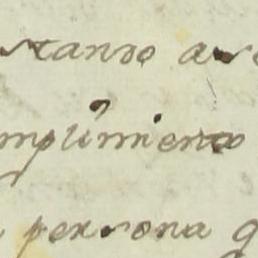 stando a
mplimiento
persona q